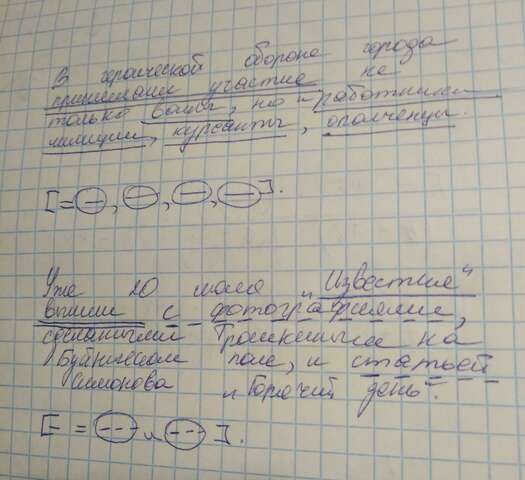 В героической обороне города
принимали участие не
только воины, но и работники
милиции, курсанты, ополченцы.
[= (—), (—), (—), (—)].
Уже 20 июля "Известия"
вышли с фотографиями,
сделанными Трошкиным на
Буйничском поле, и статьей
Симонова "Горячий день".
[— = (---) и (---)].